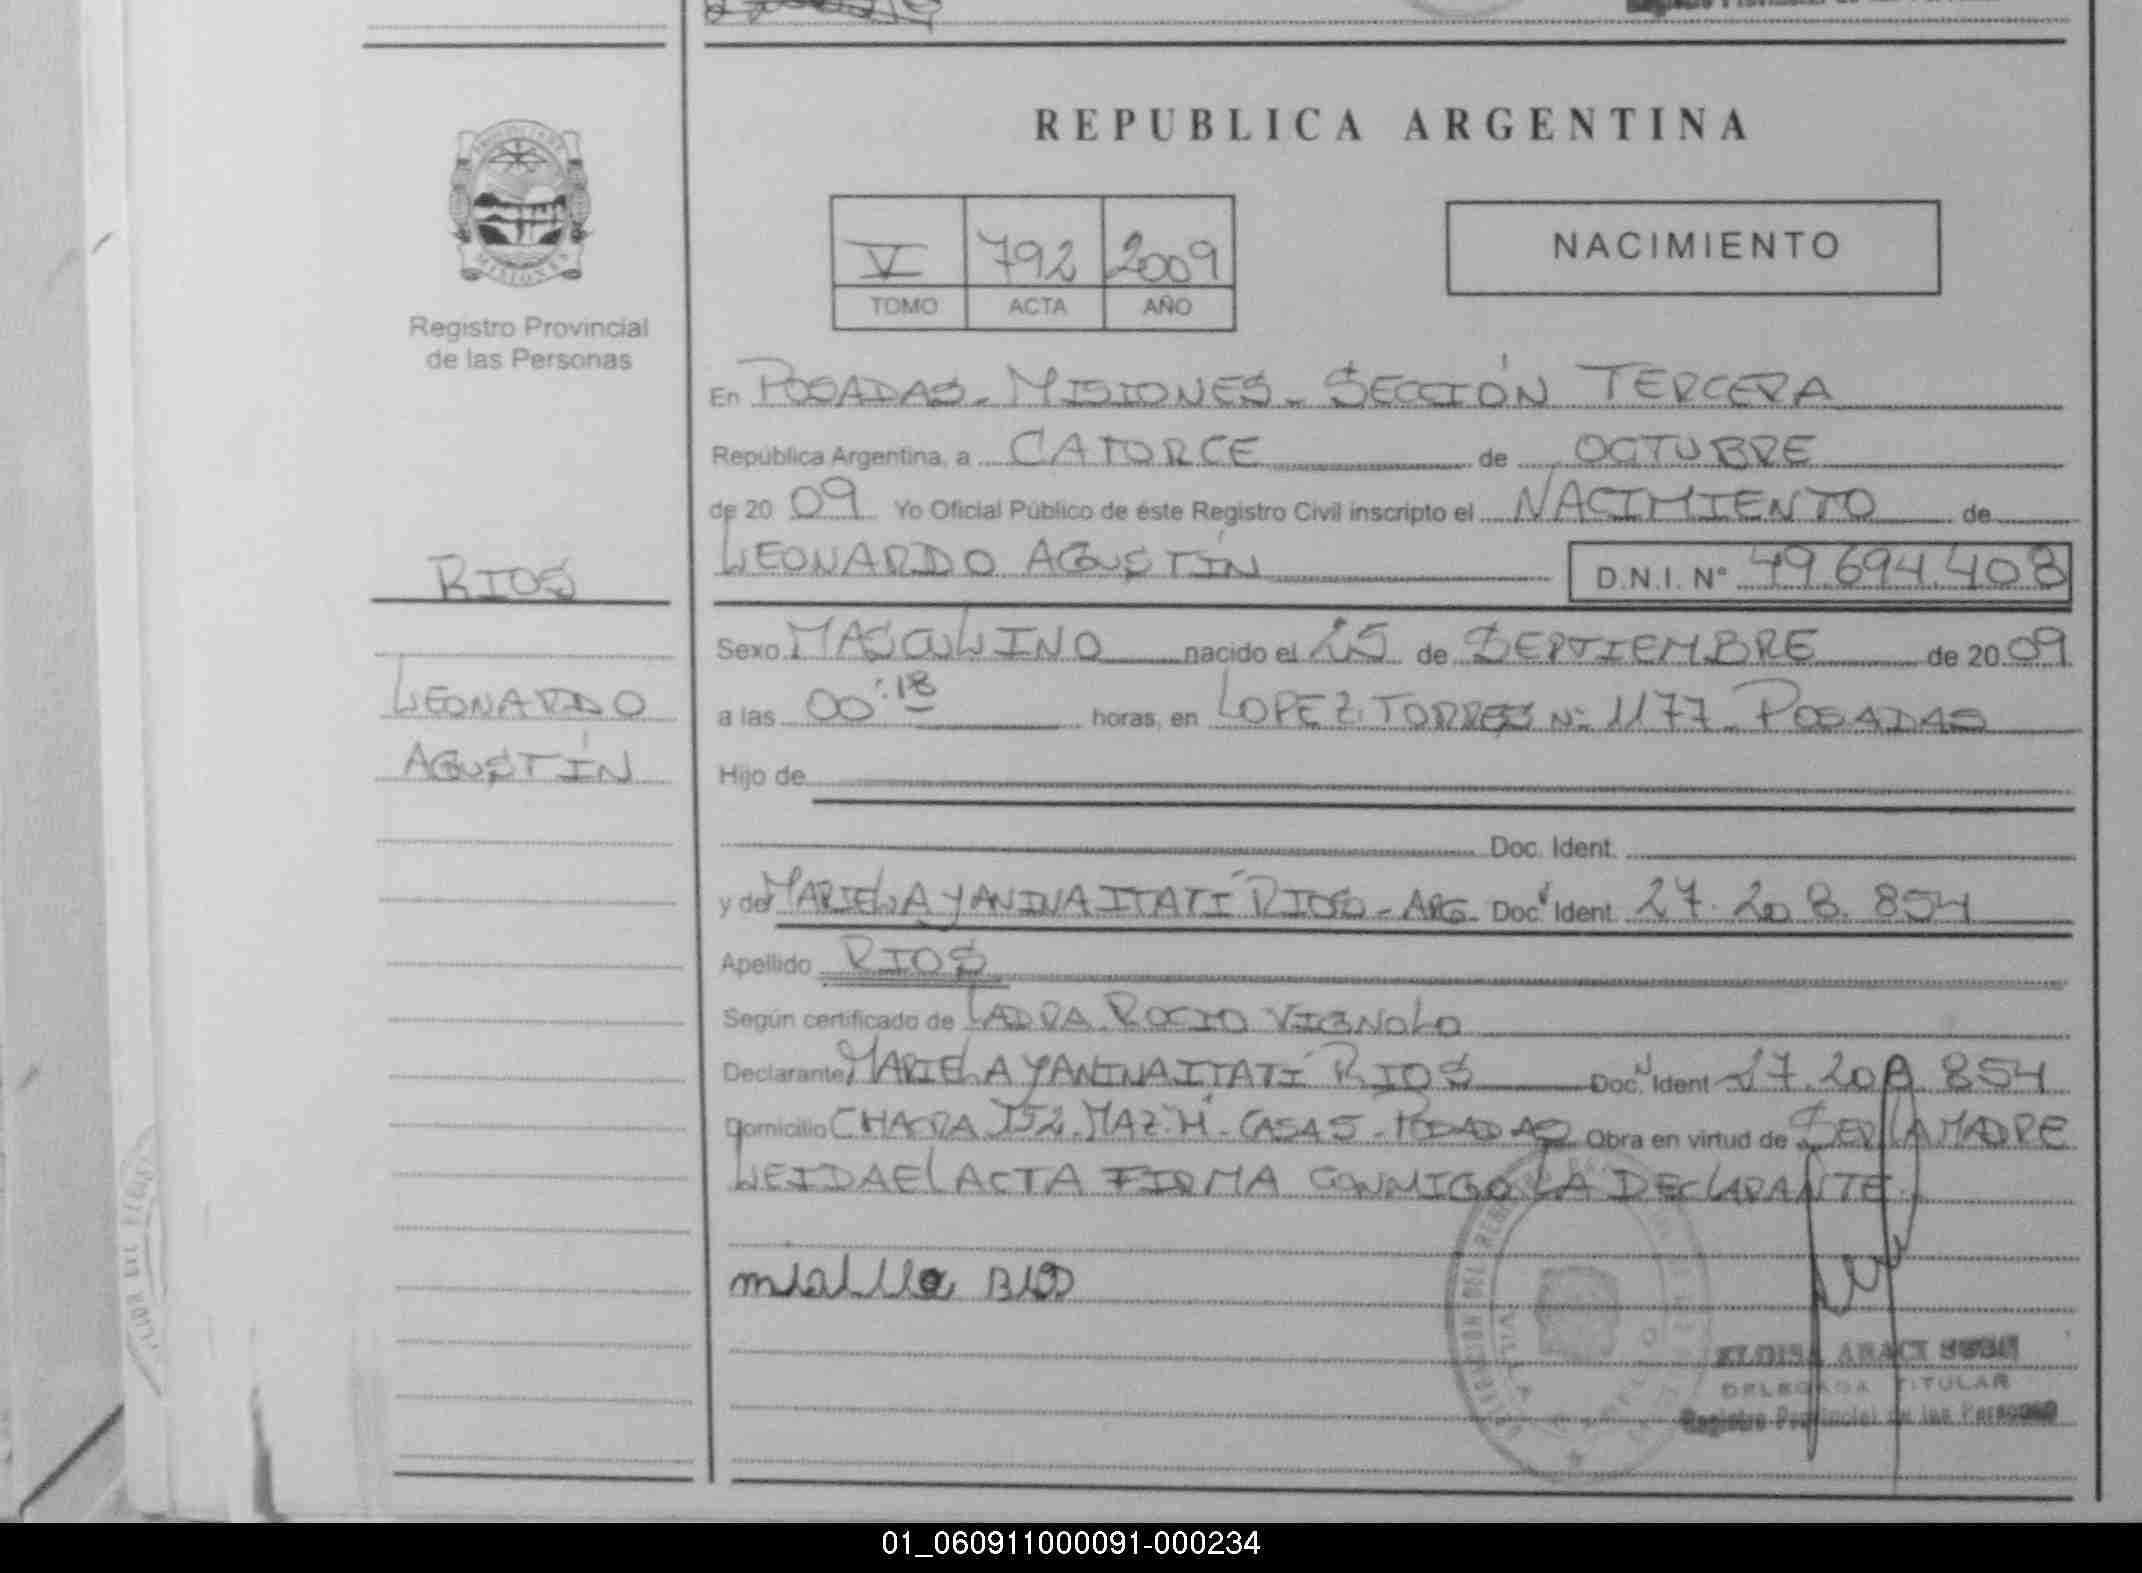 REPUBLICA ARGENTINA
PROVINCIA DE
MISIONES
Registro Provincial
de las Personas
V 792 2009
TOMO ACTA AÑO
NACIMIENTO
En POSADAS - MISIONES - SECCIÓN TERCERA
República Argentina, a CATORCE de OCTUBRE
de 20 09 Yo Oficial Público de éste Registro Civil inscripto el NACIMIENTO de
LEONARDO AGUSTÍN D.N.I. Nº 49.694.408
RIOS
LEONARDO
AGUSTÍN
Sexo MASCULINO nacido el 25 de SEPTIEMBRE de 20 09
a las 00:18 horas, en LOPEZ TORRES Nº 1177 - POSADAS
Hijo de
Doc. Ident.
y de MARIELA YANINA ITATÍ RIOS - ARG - Doc. Ident. 27.208.854
Apellido RIOS
Según certificado de LAURA ROCIO VIGNOLO
Declarante MARIELA YANINA ITATÍ RIOS Doc. Ident 27.208.854
Domicilio CHACRA 152. MAZ. H - CASA 5 - POSADAS Obra en virtud de SER LA MADRE
LEIDA EL ACTA FIRMA CONMIGO LA DECLARANTE
ELOISA ARACI
DELEGADA TITULAR
Registro Provincial de las Personas
01_060911000091-000234